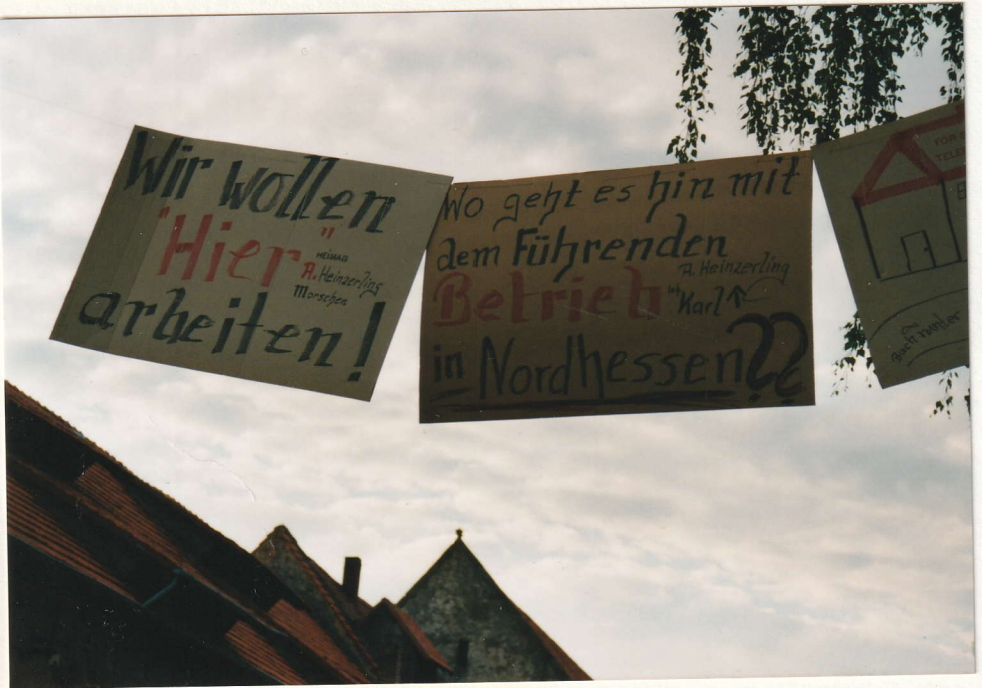 Wir wollen
"Hier"
HEIMAG
A. Heinzerling
Morschen
arbeiten!
Wo geht es hin mit
dem Führenden
A. Heinzerling
Betrieb
Karl
in Nordhessen??
FÜR
TELE